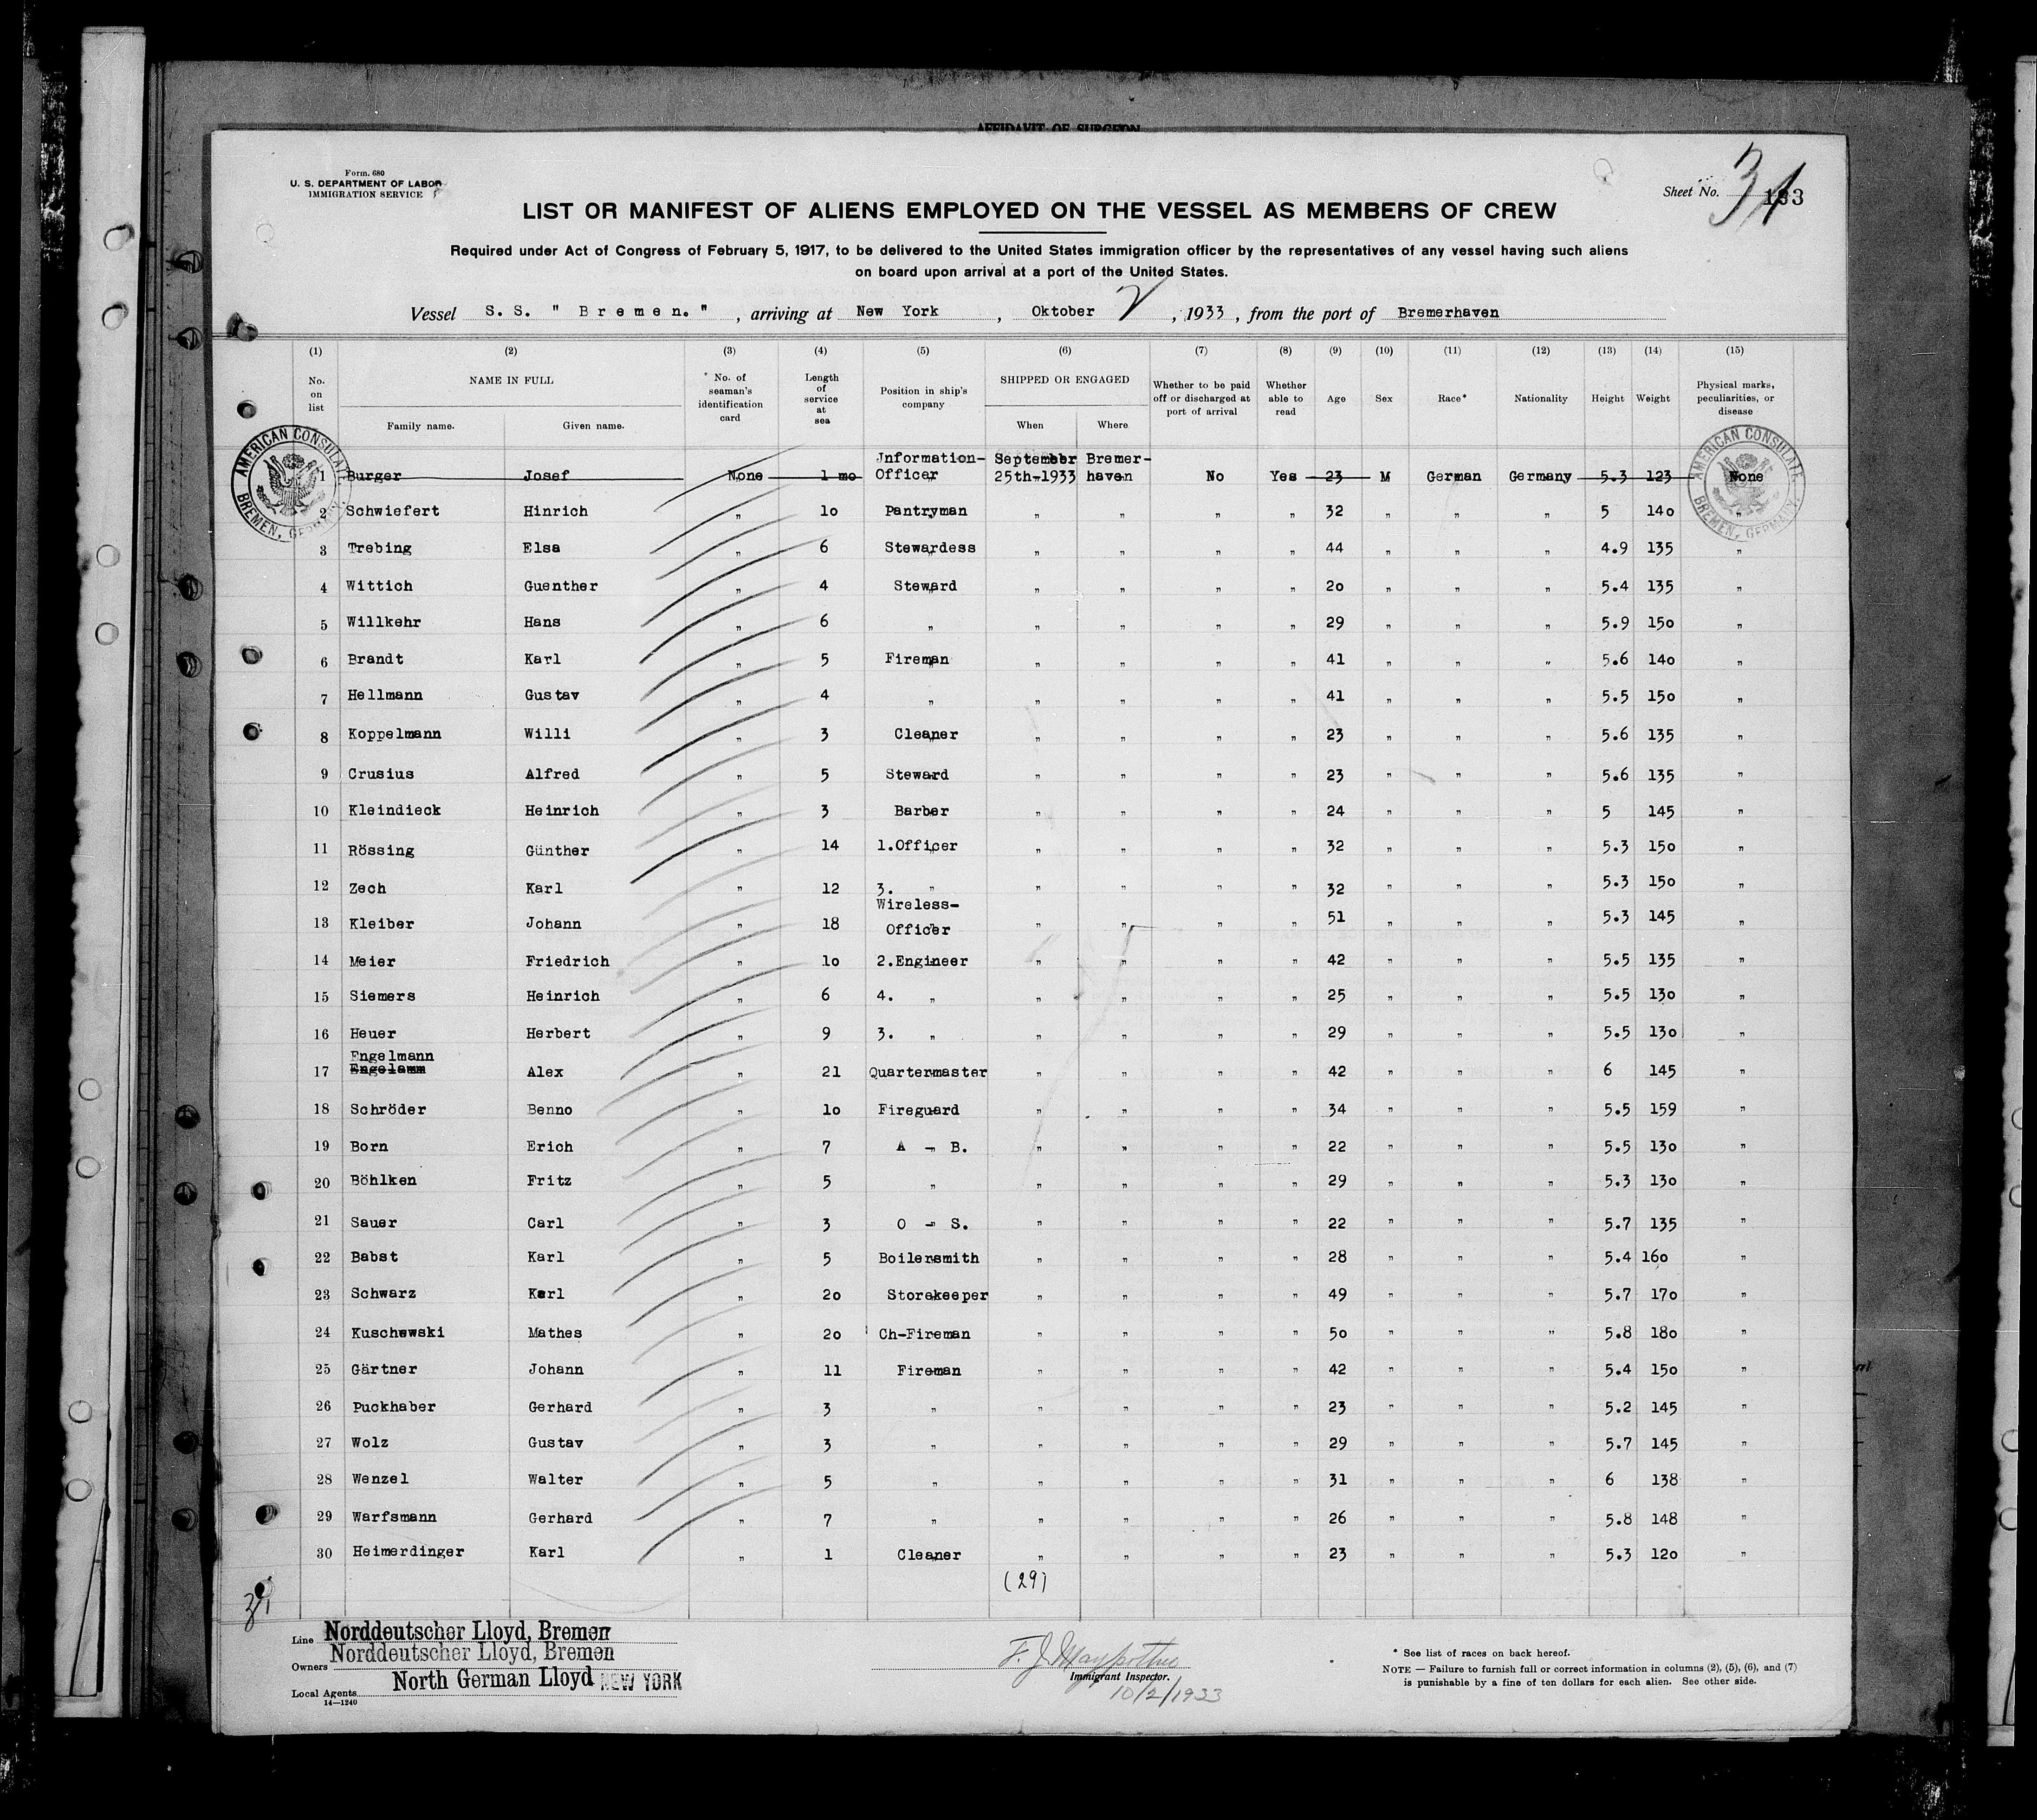 AFFIDAVIT OF SURGEON
Form. 680
U. S. DEPARTMENT OF LABOR
IMMIGRATION SERVICE
Sheet No. 31 133
LIST OR MANIFEST OF ALIENS EMPLOYED ON THE VESSEL AS MEMBERS OF CREW
Required under Act of Congress of February 5, 1917, to be delivered to the United States immigration officer by the representatives of any vessel having such aliens
on board upon arrival at a port of the United States.
Vessel S. S. " B r e m e n. " , arriving at New York , Oktober 2 , 1933 , from the port of Bremerhaven
(1) (2) (3) (4) (5) (6) (7) (8) (9) (10) (11) (12) (13) (14) (15)
No. on list NAME IN FULL Family name. Given name. * No. of seaman's identification card Length of service at sea Position in ship's company SHIPPED OR ENGAGED When Where Whether to be paid off or discharged at port of arrival Whether able to read Age Sex Race* Nationality Height Weight Physical marks, peculiarities, or disease
AMERICAN CONSULATE BREMEN, GERMANY
AMERICAN CONSULATE, BREMEN, GERMANY
1 Burger Josef None 1 mo Jnformation-Officer September 25th-1933 Bremer-haven No Yes 23 M German Germany 5.3 123 None
2 Schwiefert Hinrich " 1o Pantryman " " " " 32 " " " 5 14o "
3 Trebing Elsa " 6 Stewardess " " " " 44 " " " 4.9 135 "
4 Wittich Guenther " 4 Steward " " " " 2o " " " 5.4 135 "
5 Willkehr Hans " 6 " " " " " 29 " " " 5.9 15o "
6 Brandt Karl " 5 Fireman " " " " 41 " " " 5.6 14o "
7 Hellmann Gustav " 4 " " " " " 41 " " " 5.5 15o "
8 Koppelmann Willi " 3 Cleaner " " " " 23 " " " 5.6 135 "
9 Crusius Alfred " 5 Steward " " " " 23 " " " 5.6 135 "
10 Kleindieck Heinrich " 3 Barber " " " " 24 " " " 5 145 "
11 Rössing Günther " 14 1.Officer " " " " 32 " " " 5.3 15o "
12 Zech Karl " 12 3. " " " " " 32 " " " 5.3 15o "
13 Kleiber Johann " 18 Wireless-Officer " " " " 51 " " " 5.3 145 "
14 Meier Friedrich " 1o 2.Engineer " " " " 42 " " " 5.5 135 "
15 Siemers Heinrich " 6 4. " " " " " 25 " " " 5.5 13o "
16 Heuer Herbert " 9 3. " " " " " 29 " " " 5.5 13o "
Engelmann
17 Engelamm Alex " 21 Quartermaster " " " " 42 " " " 6 145 "
18 Schröder Benno " 1o Fireguard " " " " 34 " " " 5.5 159 "
19 Born Erich " 7 A - B. " " " " 22 " " " 5.5 13o "
20 Böhlken Fritz " 5 " " " " " 29 " " " 5.3 13o "
21 Sauer Carl " 3 O - S. " " " " 22 " " " 5.7 135 "
22 Babst Karl " 5 Boilersmith " " " " 28 " " " 5.4 16o "
23 Schwarz Karl " 2o Storekeeper " " " " 49 " " " 5.7 17o "
24 Kuschewski Mathes " 2o Ch-Fireman " " " " 5o " " " 5.8 18o "
25 Gärtner Johann " 11 Fireman " " " " 42 " " " 5.4 15o "
26 Puckhaber Gerhard " 3 " " " " " 23 " " " 5.2 145 "
27 Wolz Gustav " 3 " " " " " 29 " " " 5.7 145 "
28 Wenzel Walter " 5 " " " " " 31 " " " 6 138 "
29 Warfsmann Gerhard " 7 " " " " " 26 " " " 5.8 148 "
30 Heimerdinger Karl " 1 Cleaner " " " " 23 " " " 5.3 12o "
(29)
Line Norddeutscher Lloyd, Bremen
Owners Norddeutscher Lloyd, Bremen
Local Agents North German Lloyd NEW YORK
14—1240
Immigrant Inspector.
10/2/1933
* See list of races on back hereof.
NOTE — Failure to furnish full or correct information in columns (2), (5), (6), and (7)
is punishable by a fine of ten dollars for each alien. See other side.